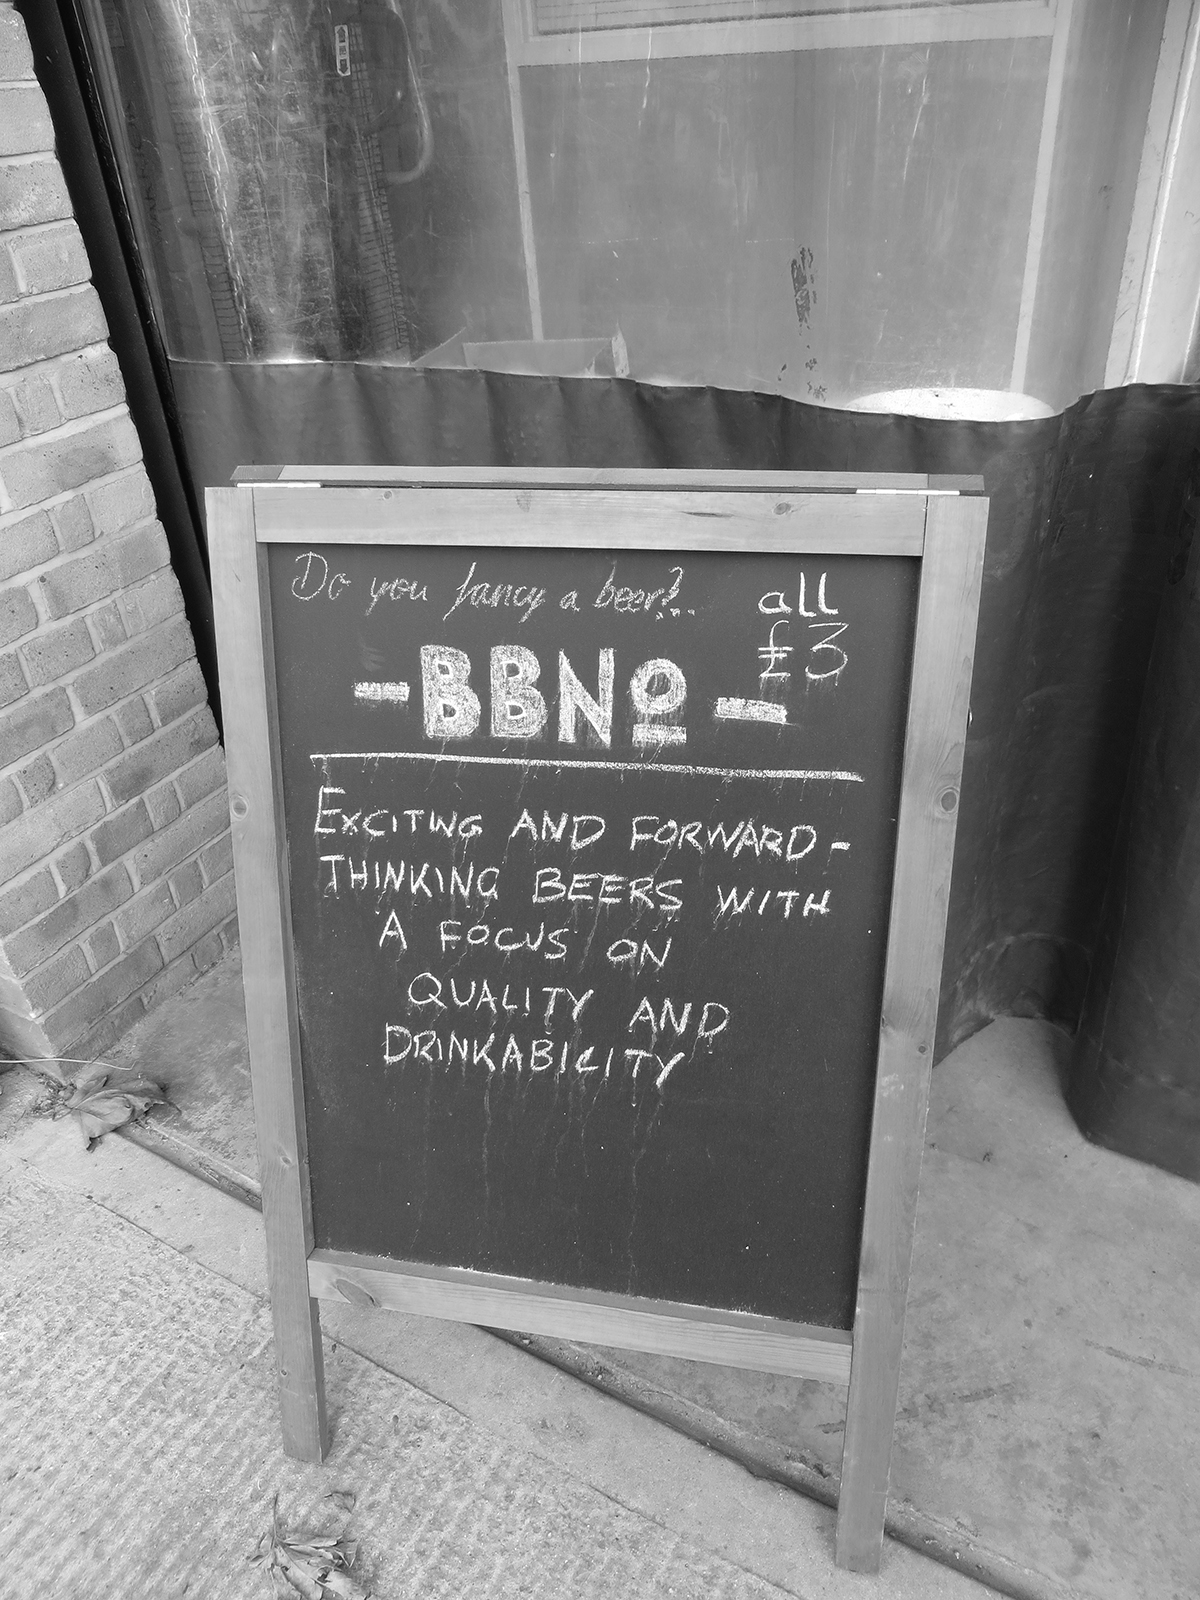 Do you fancy a beer?..
all
£3
-BBNo-
EXCITING AND FORWARD-
THINKING BEERS WITH
A FOCUS ON
QUALITY AND
DRINKABILITY